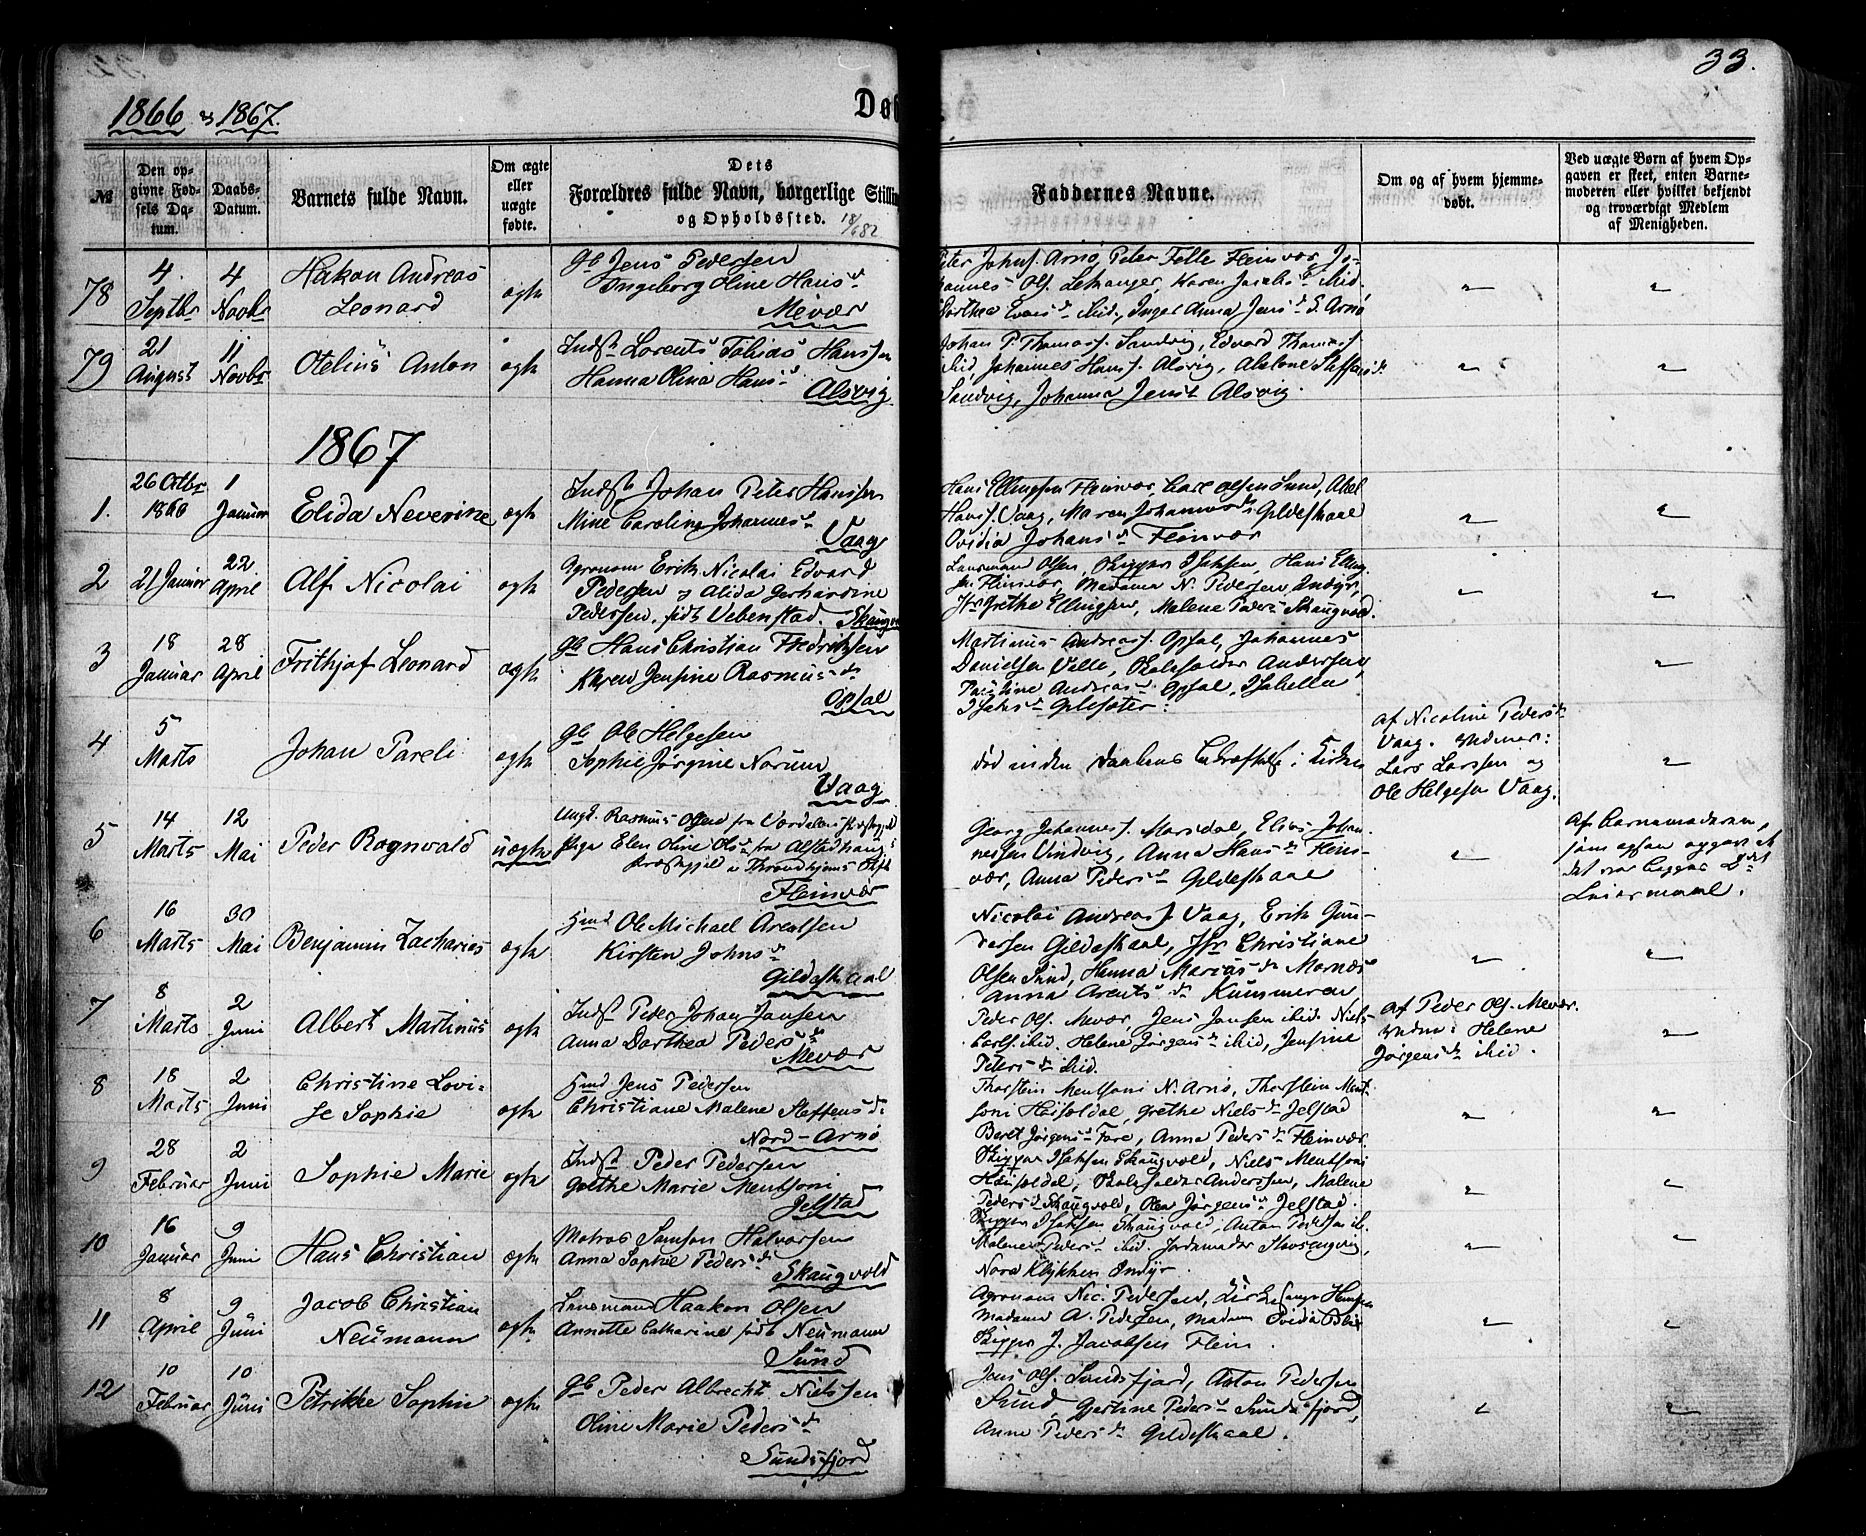 33.
1866 & 1867.
Døb
№
Den opgivne Fødsels Datum.
Daabs-Datum.
Barnets fulde Navn.
Om ægte eller uægte fødte.
Dets Forældres fulde Navn, borgerlige Stilling og Opholdssted.
18/682
Faddernes Navne.
Om og af hvem hjemmedøbt.
Ved uægte Børn af hvem Opgaven er skeet, enten Barnemoderen eller hvilket bekjendt og troværdigt Medlem af Menigheden.
78
4 Septbr
4 Novbr
Hakon Andreas
Leonard
ægte
Gb Jens Pedersen
Ingeborg Oline Hansd
Mevær
Peter Johns. Arnø, Peter Felle Fleinvær, Jo-
hannes Ols. Lekanger, Karen Jacobsd ibid.
Dorthea Evensd ibid, Inger Anna Jensd S. Arnø
"
"
79
21 August
11 Novbr
Otelius Anton
ægte
Indst Lorents Tobias Hanssen
Hanna Olina Hansd
Alsvig
Johan P. Thomass. Sandvig, Edvard Thomass
ibid Johannes Hanss. Alsvig, Abelone Steffensd.
Sandvig, Johanna Jensd Alsvig
"
"
1867
1.
26 Octbr 1866
1 Januar
Elida Neverine
ægte
Indst Johan Peter Hanssen
Mine Caroline Johannesd
Vaag
Hans Ellingsen Fleinvær, Carl Olsen Sund, Abel
Hanss. Vaag, Maren Johannesd Gildeskaal
Ovidia Johansd Fleinvær
"
"
2
21 Januar
22 April
Alf Nicolai
ægte
Agronom Erik Nicolai Edvard
Pedersen & Alida Gerhardine
Pederssen, født Vebenstad. Skaugvold
Lensmand Olsen, Skipper Isaksen, Hans Elling-
sen Fleinvær, Madame N. Pedersen Indyr,
Jfr Grethe Ellingsen, Malene Pedersd Skaugvold.
"
"
3
18 Januar
28 April
Frithjof Leonard
ægte
Gb Hans Christian Fredriksen
Karen Jensine Rasmusd
Opsal
Martinus Andreass. Opsal, Johannes
Danielsen Valle, Skoleholder Andersen,
Andreasd Opsal, Isabella
Isaksd Gildsæter.
"
4
5 Marts
Johan Pareli
ægte
Gb Ole Helgesen
Sophie Jørgine Norum
Vaag
Død inden Daabens Bekræftelse i Kirken
af Nicoline Pedersd
Vaag. Vidner:
Lars Larssen og
Ole Helgesen Vaag.
"
5
14 Marts
12 Mai
Peder Rognvald
uægte
Ungk. Rasmus Olsen fra Værdalens Præstegjæld
Pige Elen Oline Olsd fra Alstadhaugs
Præstegjæld i Throndhjems Stift
Fleinvær
Georg Johanness. Marsdal, Elias Johan-
nessen Vindvig, Anna Hansd Flein-
vær, Anna Pedersd Gildeskaal
"
Af Barnemoderen,
som ogsaa opgav at
det var begges 1ste
Leiermaal.
6
16 Marts
30 Mai
Benjamin Zacharias
ægte
Hmd Ole Michael Arentsen
Kirsten Johnsd
Gildeskaal
Nicolai Andreas J. Vaag, Erik Gun-
dersen Gildeskaal, Jfr Christiane
Olsen Sund, Hanna Mariasd Mornæs
Anna Arentsd Kummeren
"
"
7
8 Marts
2 Juni
Albert Martinus
ægte
Indst Peder Johan Jansen
Anna Dorthea Pedersd
Mevær
Peder Ols. Mevær, Jens Jansen ibid. Niels
Carls. ibid. Helene Jørgensd ibid, Jensine
Petersd ibid.
af Peder Ols. Mevær.
Vidne: Helene
Jørgensd ibid.
"
8
18 Marts
2 Juni
Christine Lovi-
se Sophie
ægte
Hmd Jens Pedersen
Christiane Malene Steffensd.
Nord-Arnø
Thorstein Mentsoni N. Arnø, Thorstein Ment-
soni Høisoldal, Grethe Nielsd Jelstad
Beret Jørgensd Fore, Anna Pedersd Fleinvær.
"
"
9
28 Februar
2 Juni
Sophie Marie
ægte
Indst Peder Pedersen
Grethe Marie Mentsoni
Jelstad
Skipper Isaksen Skaugvold, Niels Mentsoni
Høisoldal, Skoleholder Anderssen, Malene
Pedersd Skaugvold, Olea Jørgensd Jelstad.
"
"
10
16 Januar
9 Juni
Hans Christian
ægte
Matros Samson Halvorsen
Anna Sophie Pedersd
Skaugvold
Skipper Isaksen Skaugvold, Anton Pedersen ib.
Malene Pedersd ibid. Jordemoder Skovsangvig,
Nora Klykken Indyr.
"
"
11
8 April
9 Juni
Jacob Christian
Neumann
ægte
Lensmand Haakon Olsen
Annette Catharine født Neumann
Sund
Agronom Nic. Pedersen, Kirkesanger Hansen
Madame A. Pedersen, Madam Ovidia
Skipper J. Jacobsen Flein.
"
"
12
10 Februar
10 Juni
Petrikke Sophie
ægte
Gb Peder Albrecht Nielssen
Oline Marie Pedersd
Sundsfjord
Jens Ols. Sundsfjord, Anton Pedersen
Sund, Gjertine Pedersd Sundsfjord,
Anne Pedersd Gildeskaal.
"
"